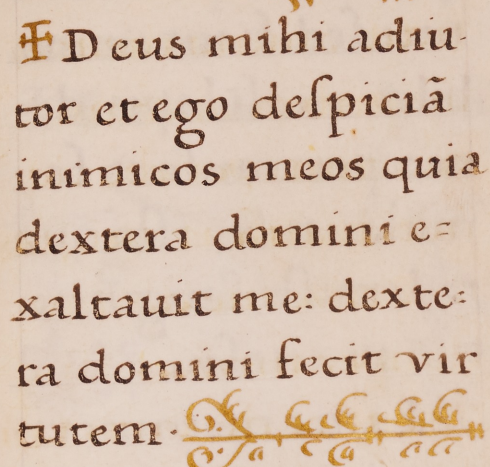 ✠ Deus mihi adiu-
tor et ego deſpiciã
inimicos meos quia
dextera domini e=
xaltauit me: dexte=
ra domini fecit vir
tutem.